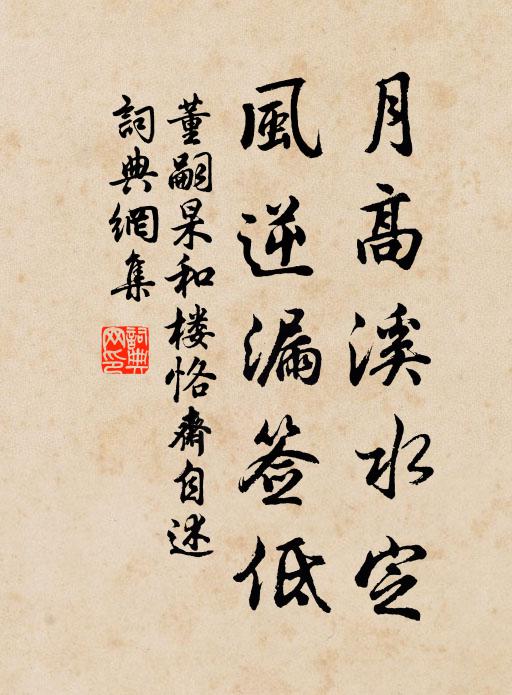 月高溪水定
風逆漏签低
董嗣杲和楼恪齋自述
詞典網集
詞典
网印